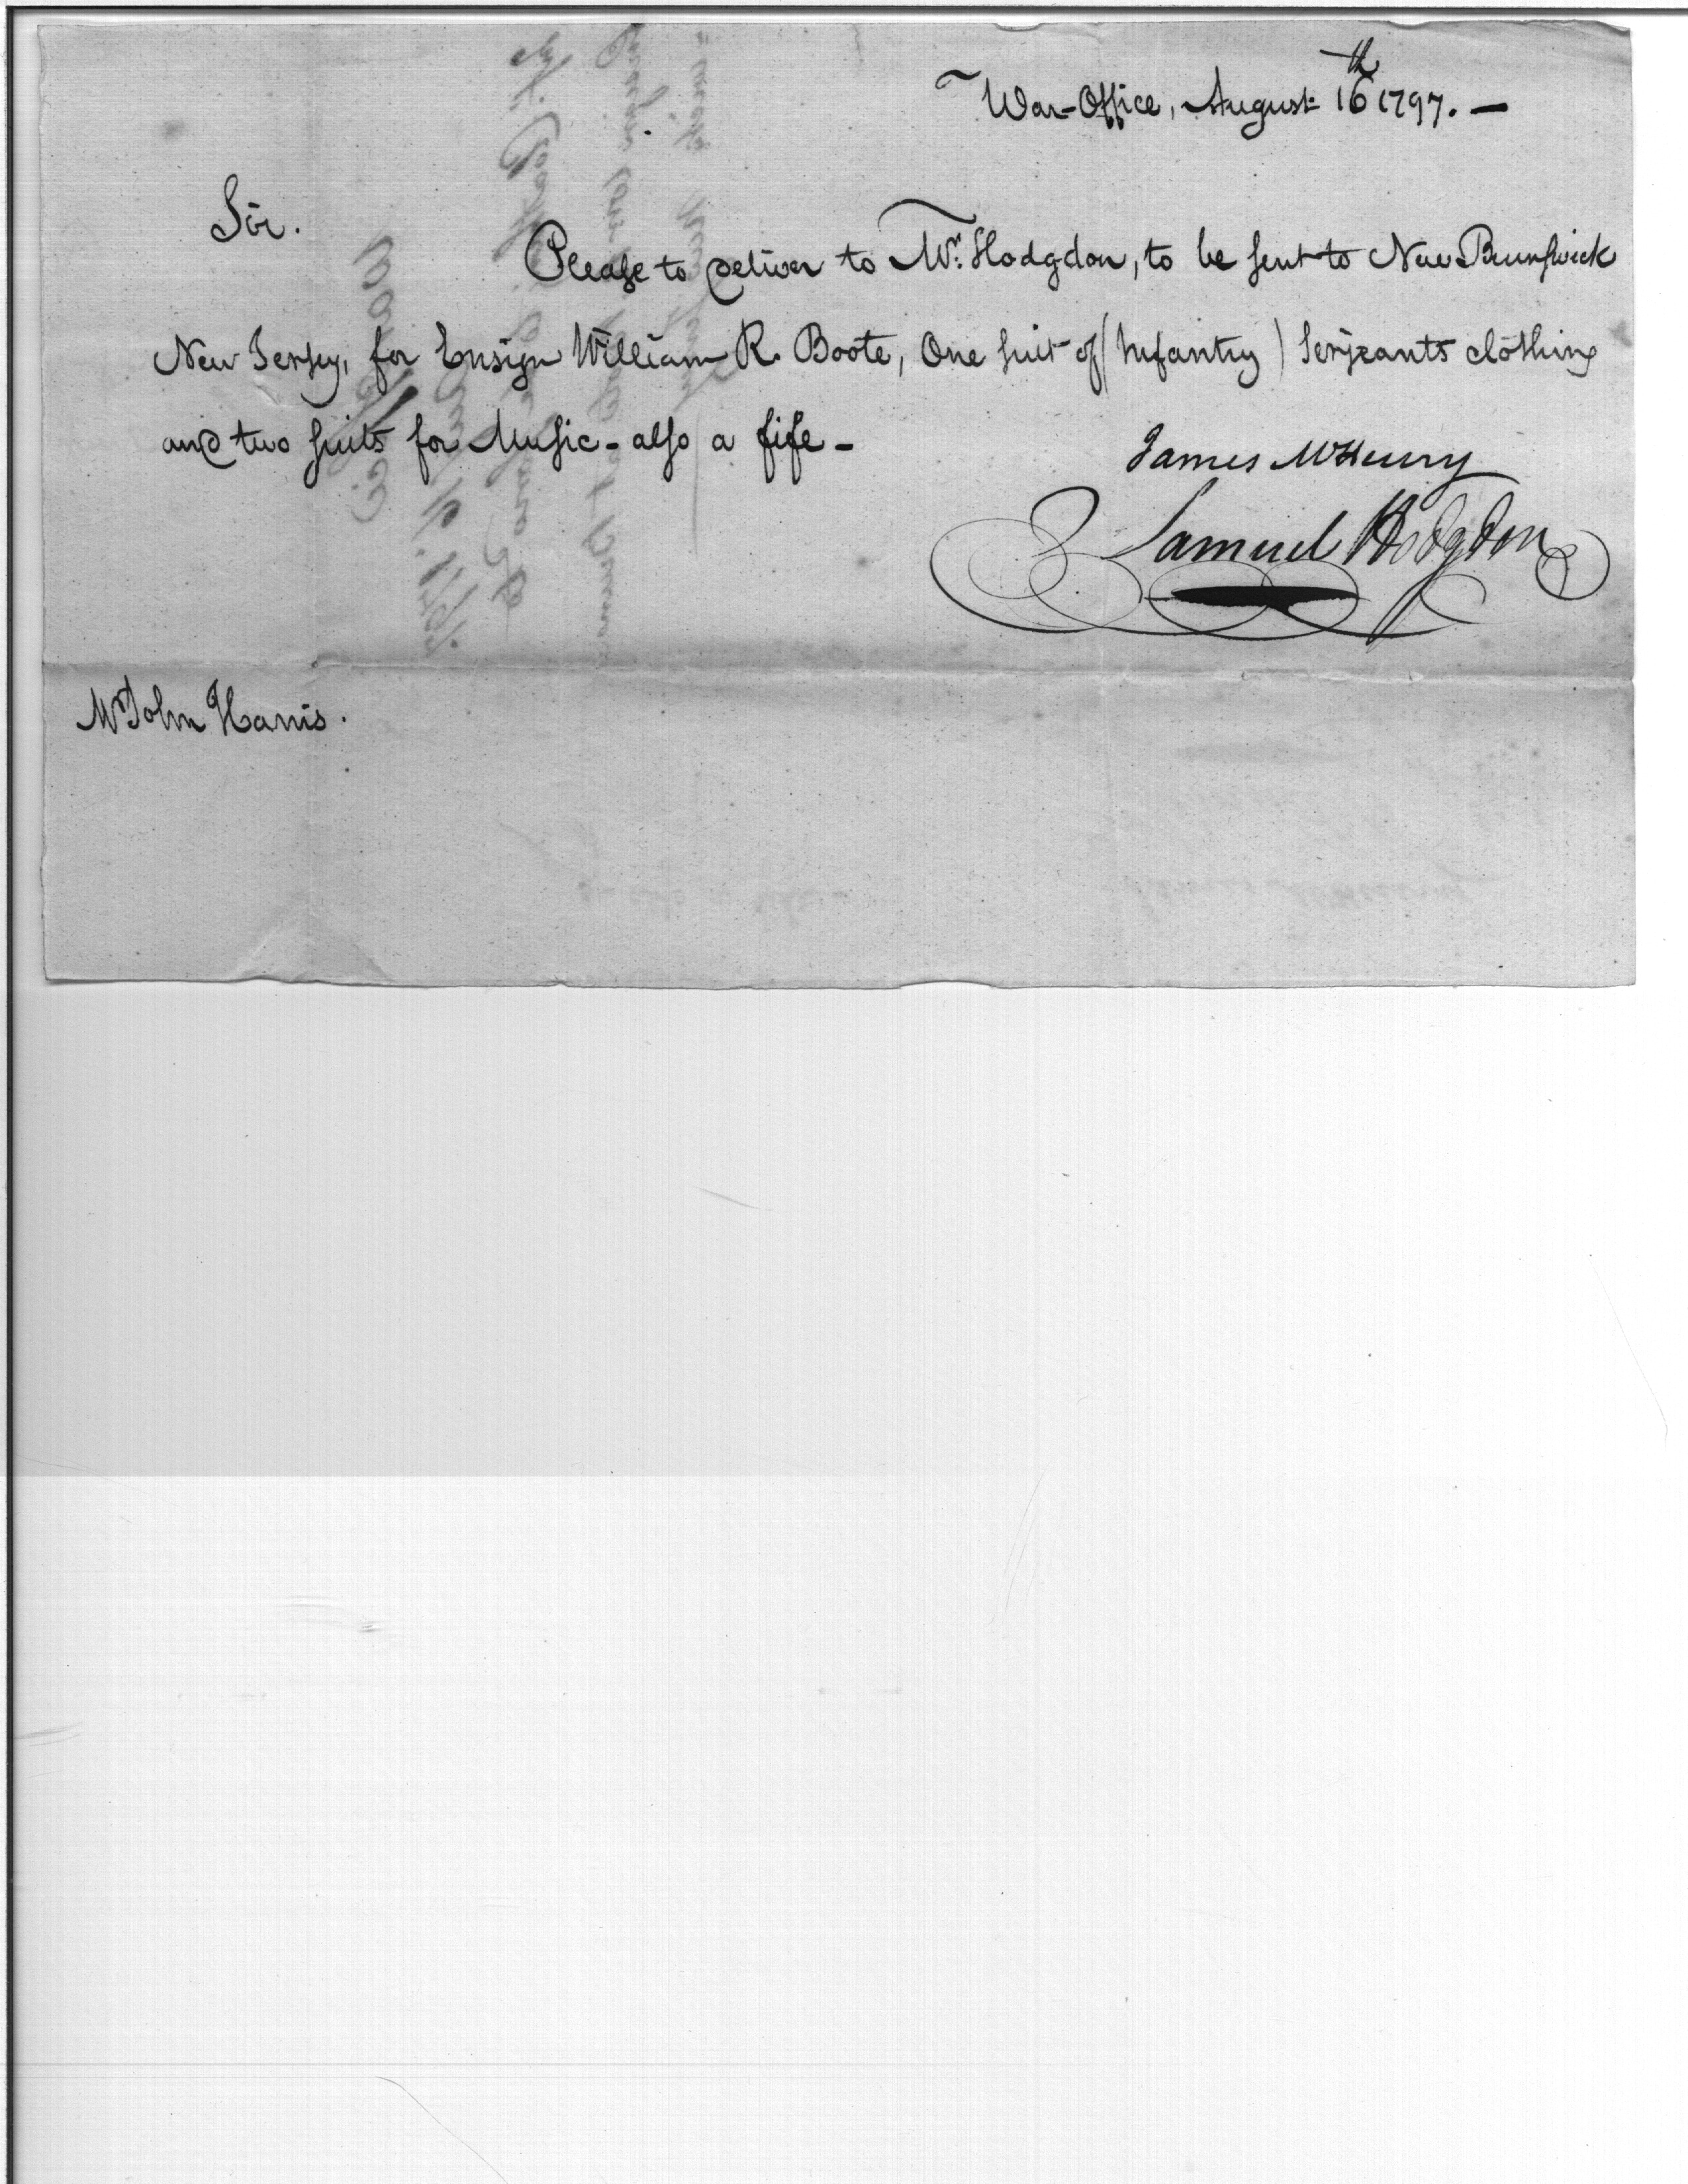 War-Office, August 16th 1797. —
Sir.
Please to deliver to Mr. Hodgdon, to be sent to New Brunswick
New Jersey, for Ensign William R. Boote, One suit of (Infantry) Serjeants clothing
and two suits for Music - also a fife -
James McHenry
Samuel Hodgdon
Mr John Harris.